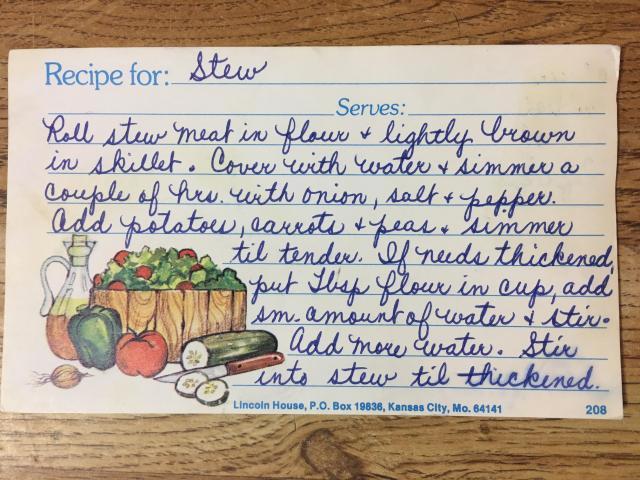 Recipe for: Stew
Serves:
Roll stew meat in flour + lightly brown
in skillet. Cover with water + simmer a
couple of hrs. with onion, salt + pepper.
Add potatoes, carrots + peas + simmer
til tender. If needs thickened,
put Tbsp flour in cup, add
sm. amount of water + stir.
Add more water. Stir
into stew til thickened.
Lincoln House, P.O. Box 19836, Kansas City, Mo. 64141 208